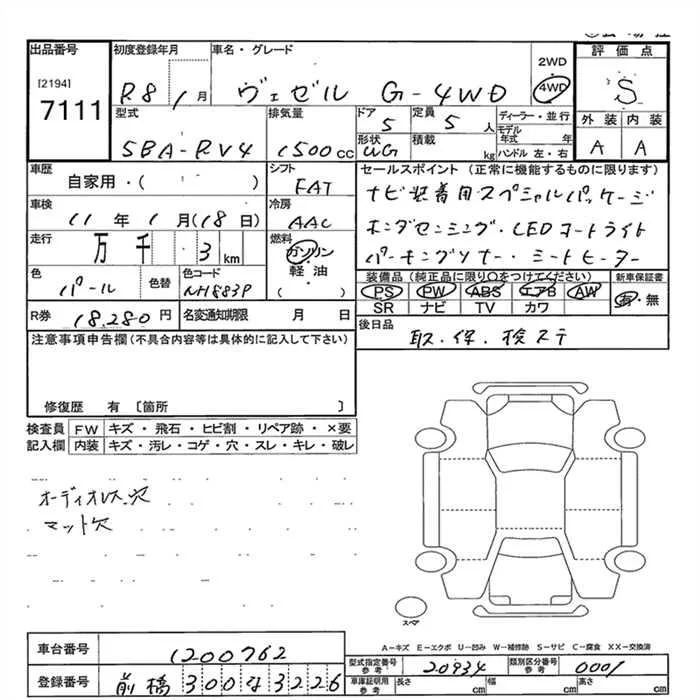 出品番号
[2194]
7111
初度登録年月
R8 / 1 月
車名・グレード
ヴェゼル G-4WD
2WD
4WD
評価点
S
型式
5BA-RV4
排気量
1500cc
ドア
5
定員
5 人
ディーラー・並行
モデル年式 年
ハンドル 左・右
形状
UG
積載
kg
外装 内装
A A
車歴
自家用・( )
シフト
FAT
セールスポイント (正常に機能するものに限ります)
ナビ装着用スペシャルパッケージ
ホンダセンシング・LEDオートライト
パーキングソナー・シートヒーター
車検
11 年 1 月(18 日)
冷房
AAC
走行
万 千 3 km
燃料
ガソリン
・
軽油
・( )
色
パール
色替
色コード
NH883P
装備品 (純正品に限り○をつけてください)
PS PW ABS エアB AW
SR ナビ TV カワ
新車保証書
有・無
R券
18,280 円
名変通知期限 月 日
後日品
取・保・検ステ
注意事項申告欄 (不具合内容等は具体的に記入して下さい)
修復歴 有 〔箇所 〕
検査員記入欄
FW キズ・飛石・ヒビ割・リペア跡・×要
内装 キズ・汚レ・コゲ・穴・スレ・キレ・破レ
オーディオレス穴
マット欠
スペア
A－キズ E－エクボ U－凹み W－補修跡 S－サビ C－腐食 XX－交換済
車台番号
1200762
登録番号
前橋 300 な 3226
型式指定番号 参考
20934
類別区分番号 参考
0001
車庫証明用 参考
長さ cm 幅 cm 高さ cm